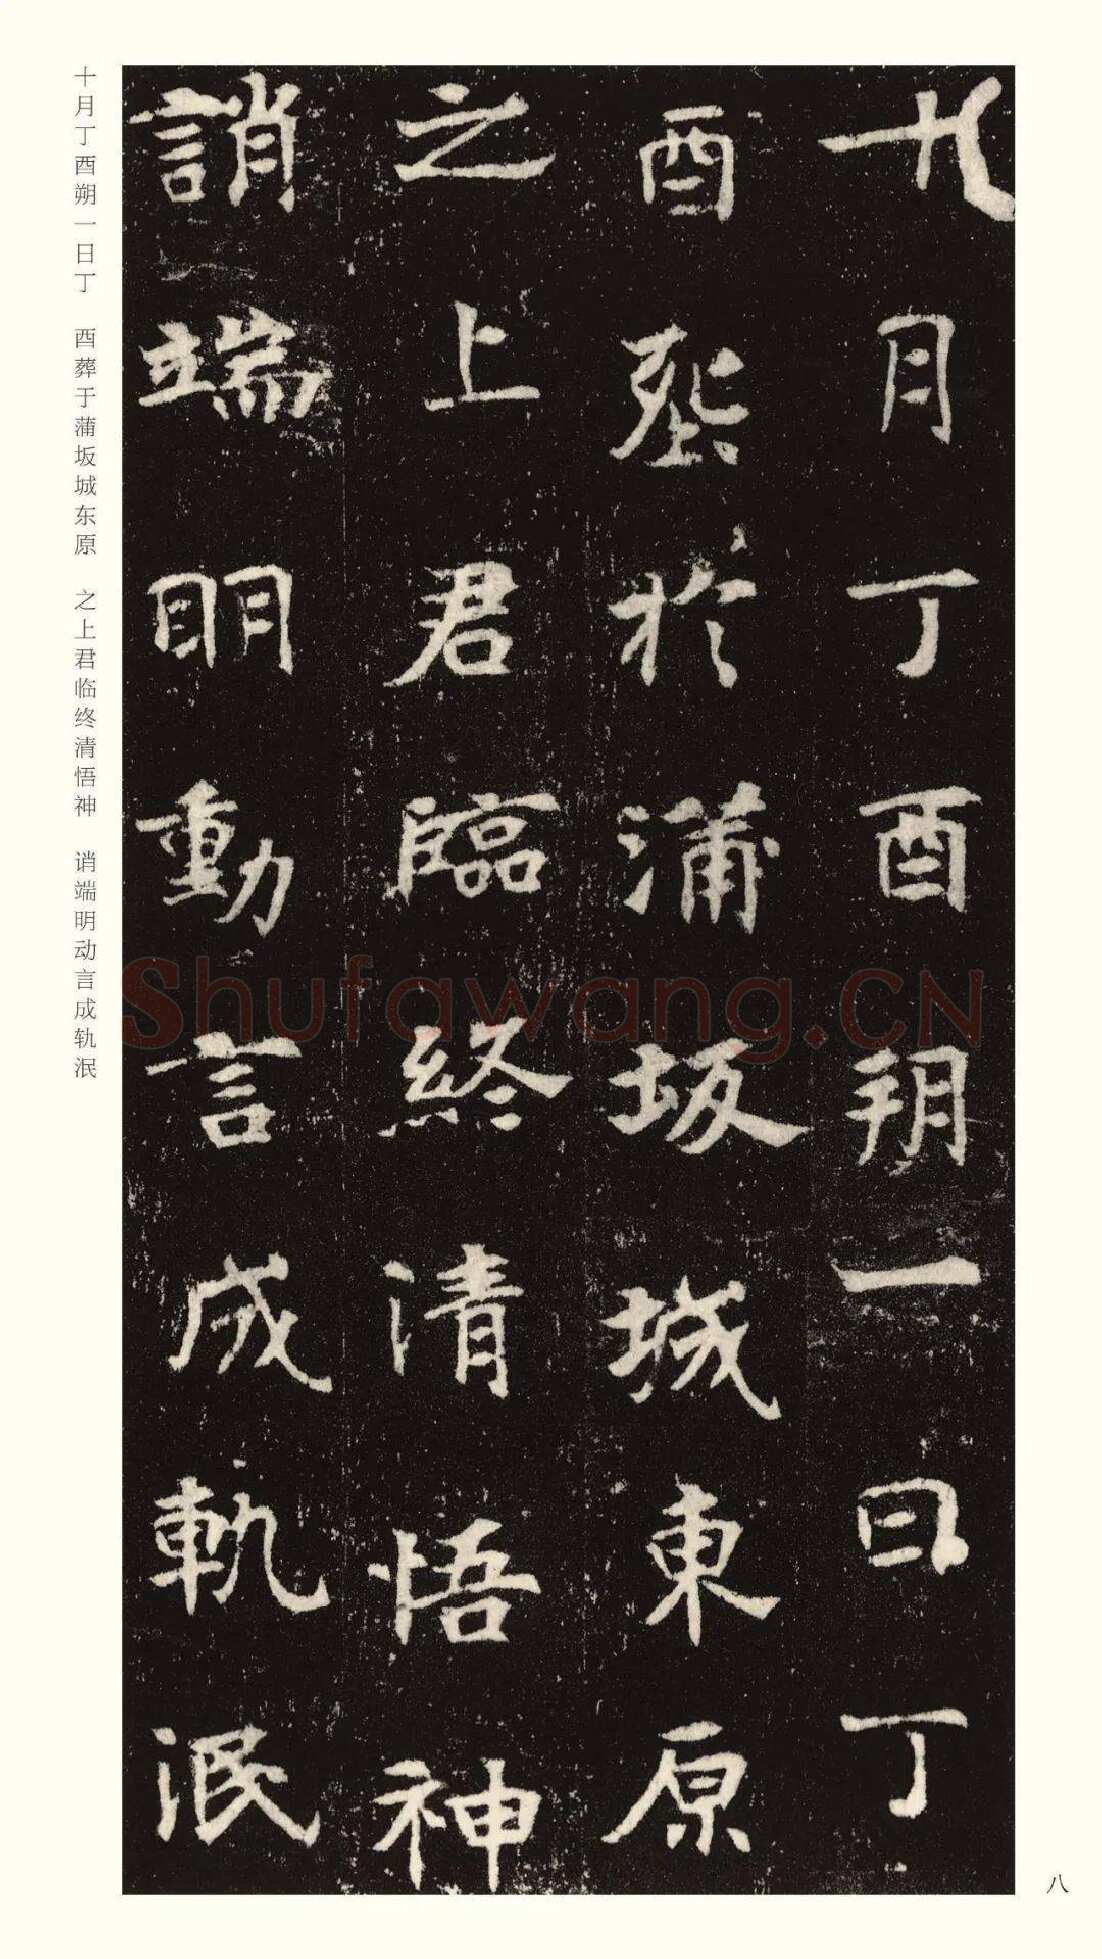 十月丁酉朔一日丁
酉葬於蒲坂城東原
之上君臨終清悟神
誚端明動言成軌泯
十月丁酉朔一日丁 酉葬于蒲坂城东原 之上君临终清悟神 诮端明动言成轨泯
Shufawang.CN
八